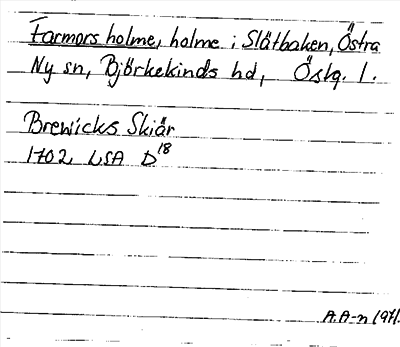 Farmors holme, holme i Slätbaken, Östra
Ny sn, Björkekinds hd, Östg. l.
Brewicks Skiär
1702 LSA D18
A.A-n 1971.